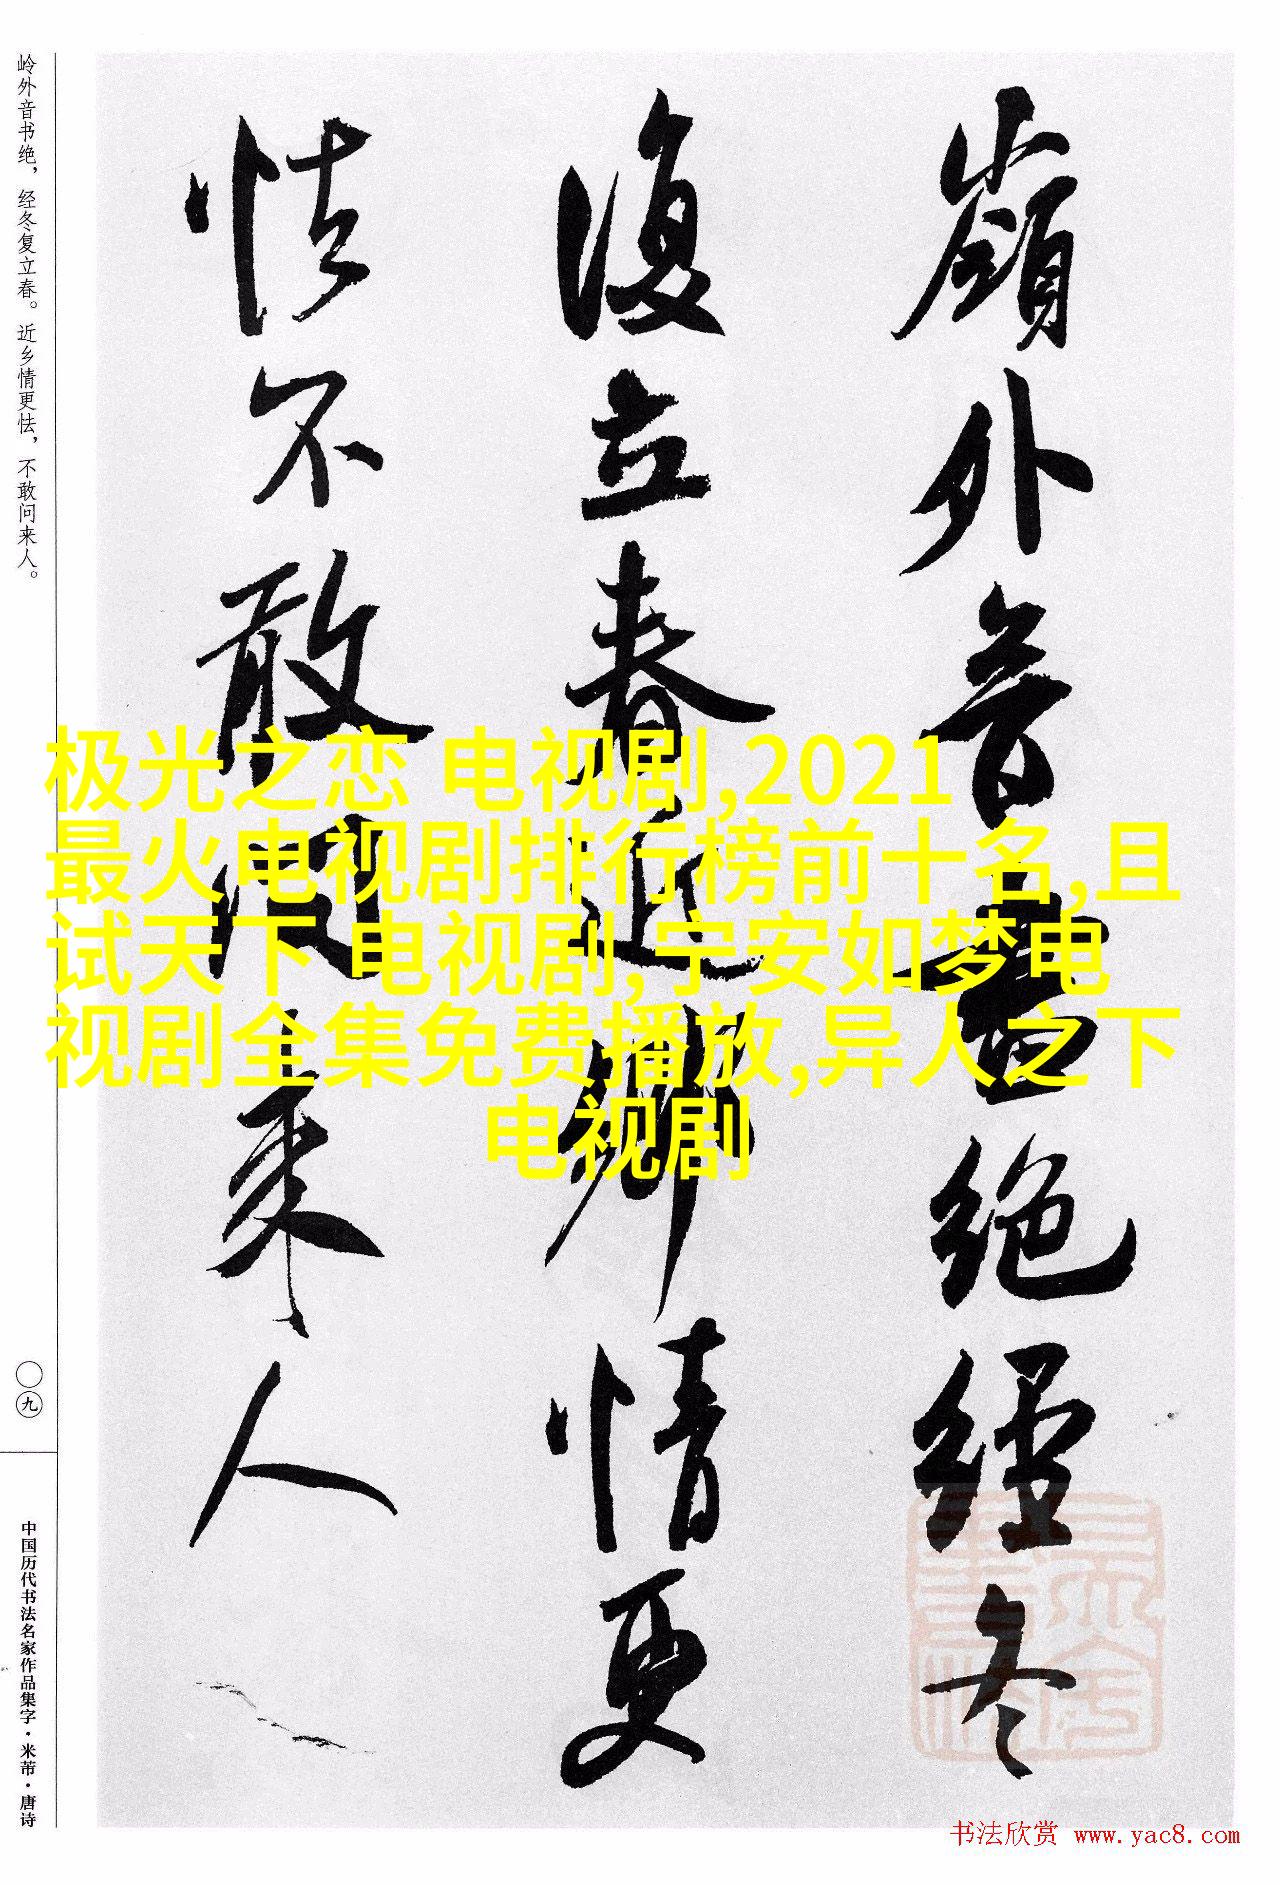 嶺外音書絕經冬
復立春近鄉情更
怯不敢問來人
岭外音书绝，经冬复立春。近乡情更怯，不敢问来人。
〇九
中国历代书法名家作品集字·米芾·唐诗
极光之恋 电视剧,2021
最火电视剧排行榜前十名,且
试天下 电视剧,宁安如梦电
视剧全集免费播放,异人之下
电视剧
书法欣赏 www.yac8.com